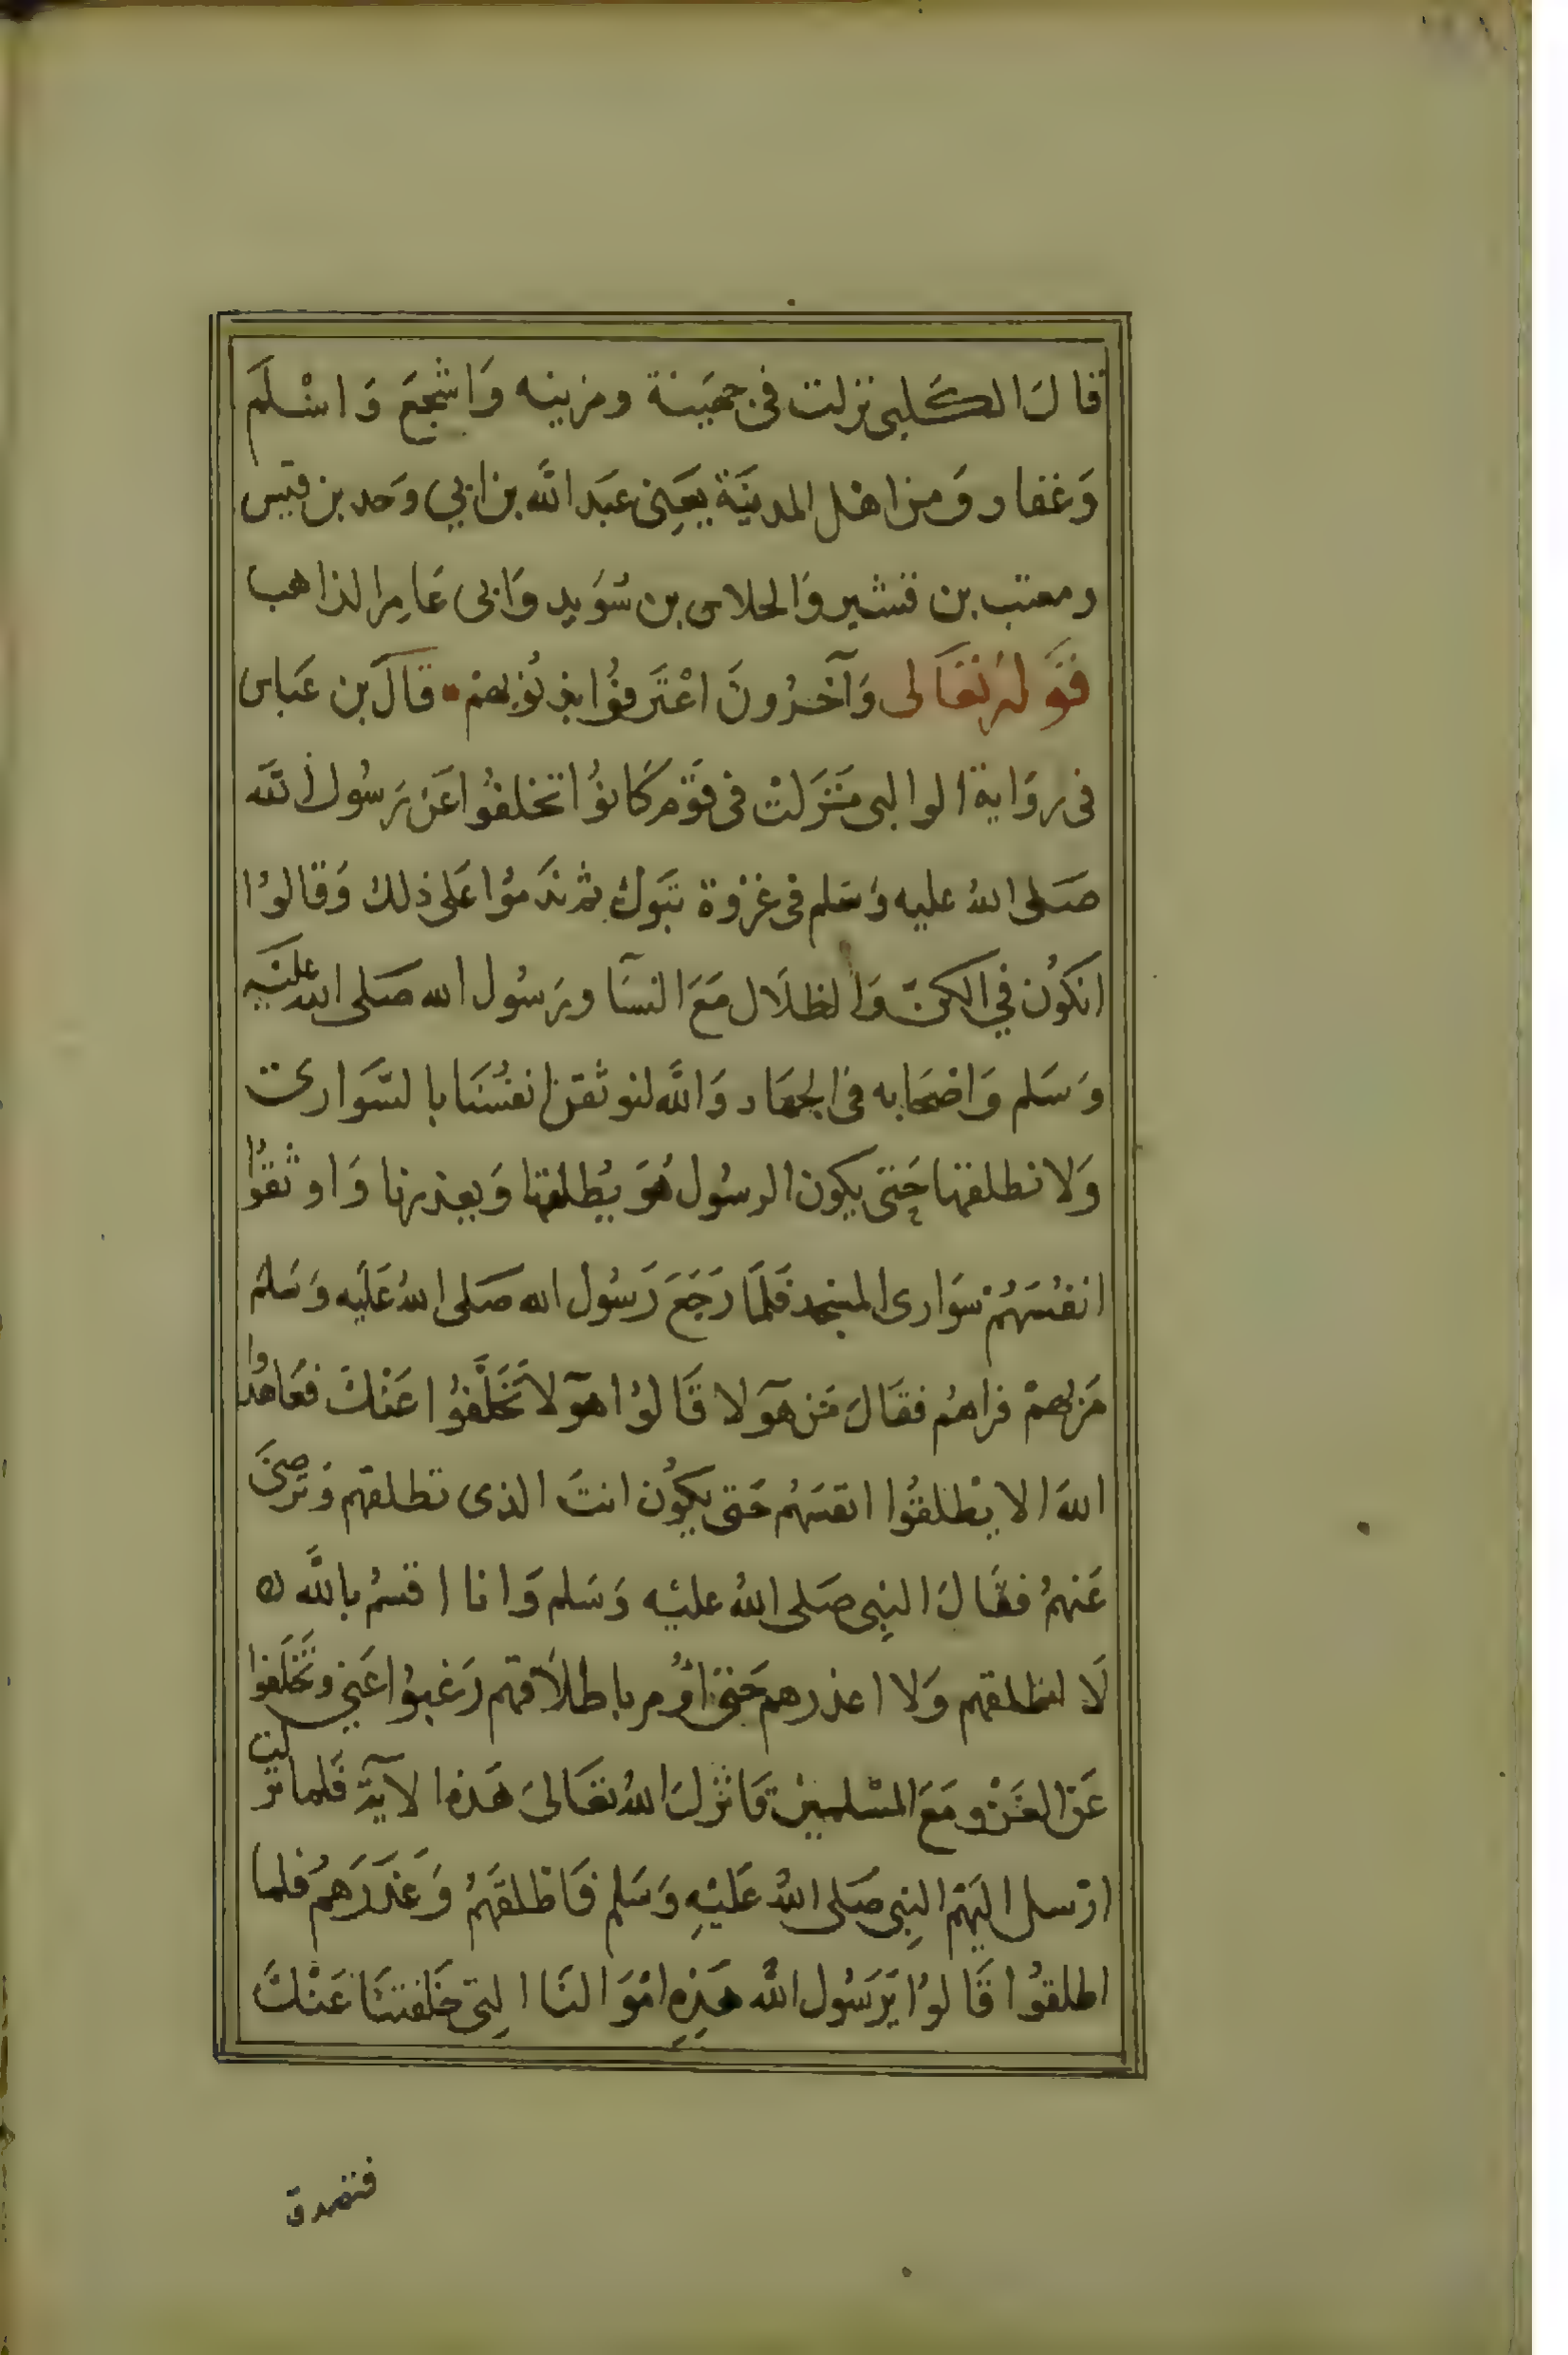 قَالَ الكَلبى نزلت فى جهَينة ومزينه وَاشجَعَ وَاسْلَم
وَغفار وَمن اهْل المدينَة يعَنِى عبَد اللَّه بن ابي وَحد بن قيس
ومعتب بن قشير وَالحلاس بن سُوَيد وَابى عَامِر الذاهب
قوَلهُ تعَالى وَآخَرُونَ اعْتَرفوُا بذنوُبهمْ قالَ بن عَباس
فى روَاية الوالبى نَزَلتْ فى قوَم كَانوُا تخلفوُا عَن رَسُول اللَّه
صَلى اللهُ عليه وَسَلم فى غزوة تبَوك ثم ندَموُا عَلى ذلك وَقالوُا
انكوُن في الكن وَالظلاَل مَعَ النسَآ ورَسُول الله صَلى الله عليْه
وَسَلم وَاصْحَابه فى الجهَاد وَاللَّه لنوثقن انفسُنَا بالسَّوارى
وَلا نطلقها حَتى يكون الرسُول هُوَ يُطلقها وَيعذرنا وَاوثقوُا
انفسَهُمْ سوَارى المسْجد فَلمَّا رَجَعَ رَسُول الله صَلى اللهُ عَليَه وَسَلم
مَر بهمْ فراهُم فقَالَ مَن هَوٓلا قَالوُا هَوٓلا تخَلَّفوُا عَنْكَ فعَاهدُوا
اللهَ الا يطْلقوُا انفسَهُم حَتى يكوُن انتَ الذى تطلقهم وَترضىَ
عَنهمُ فقَالَ النبِى صَلى اللهُ عليْه وَسَلم وَانا اقسمُ باللَّه
لَا اطلقهم وَلا اعذرهم حَتى اوُمر باطلاَقهم رَغبوُا عَنِى وَتخَلَفوا
عَن الغَزْو مَعَ المسْلمينْ فَانْزلَ اللهُ تعَالىَ هَذه الآية فَلما نزلت
ارْسل اليَهْم النبِى صَلى اللهُ عَليْهِ وَسَلم فَاطلقَهُمْ وَعَذَرَهمُ فلما
اطلقوُا قَالوُا يَرَسُول اللَّه هَذِهِ امْوَالنَا التِى خَلفتنَا عَنْكَ
فتصدق